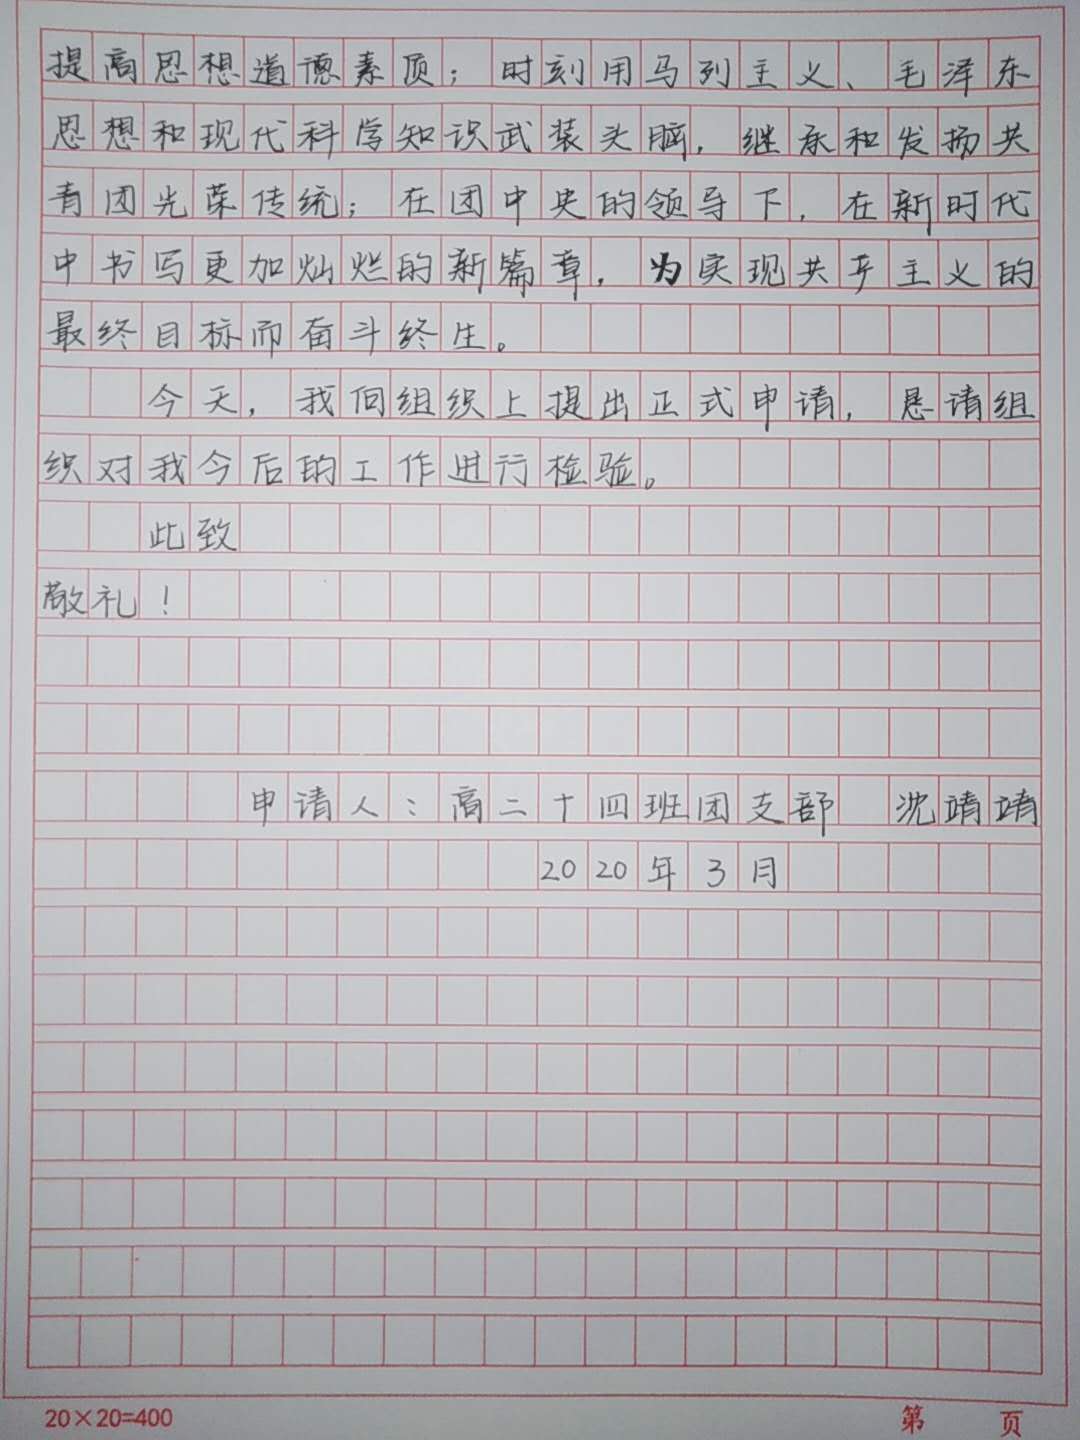 提高思想道德素质；时刻用马列主义、毛泽东
思想和现代科学知识武装头脑，继承和发扬共
青团光荣传统；在团中央的领导下，在新时代
中书写更加灿烂的新篇章，为实现共产主义的
最终目标而奋斗终生。
今天，我向组织上提出正式申请，恳请组
织对我今后的工作进行检验。
此致
敬礼！
申请人：高二十四班团支部 沈靖靖
2020年3月
20×20=400 第 页